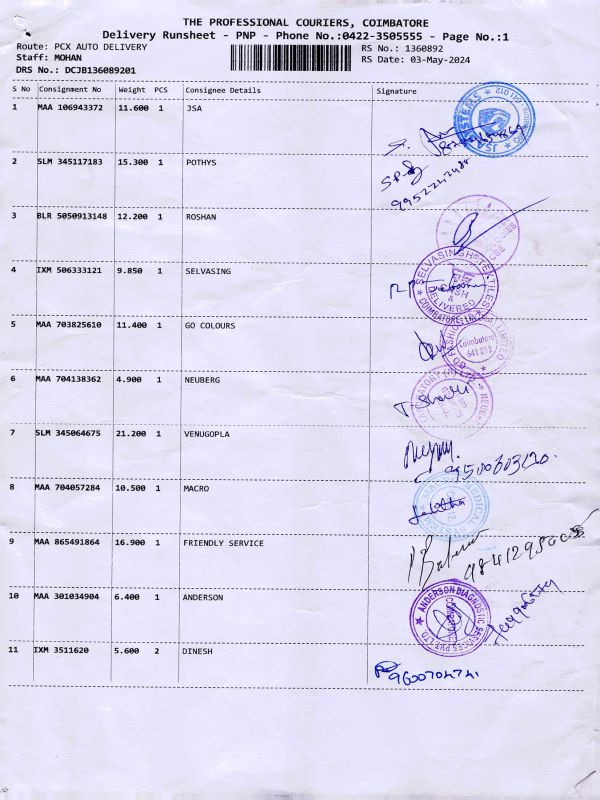 THE PROFESSIONAL COURIERS, COIMBATORE
Delivery Runsheet - PNP - Phone No.:0422-3505555 - Page No.:1
Route: PCX AUTO DELIVERY RS No.: 1360892
Staff: MOHAN RS Date: 03-May-2024
DRS No.: DCJB136089201
S No Consignment No Weight PCS Consignee Details Signature
1 MAA 106943372 11.600 1 JSA
JSA SYSTEMS 641 012
2 SLM 345117183 15.300 1 POTHYS
9952242484
3 BLR 5050913148 12.200 1 ROSHAN
4 IXM 506333121 9.850 1 SELVASING
SELVASINGH TEXTILES
& DELIVERED
COIMBATORE
5 MAA 703825610 11.400 1 GO COLOURS
GO FASHION LIMITED
Coimbatore
641 012
6 MAA 704138362 4.900 1 NEUBERG
7 SLM 345064675 21.200 1 VENUGOPLA
9500303120
8 MAA 704057284 10.500 1 MACRO
MEDICAL
9 MAA 865491864 16.900 1 FRIENDLY SERVICE
10 MAA 301034904 6.400 1 ANDERSON
ANDERSON DIAGNOSTIC SERVICES PVT LTD
11 IXM 3511620 5.600 2 DINESH
9600704741